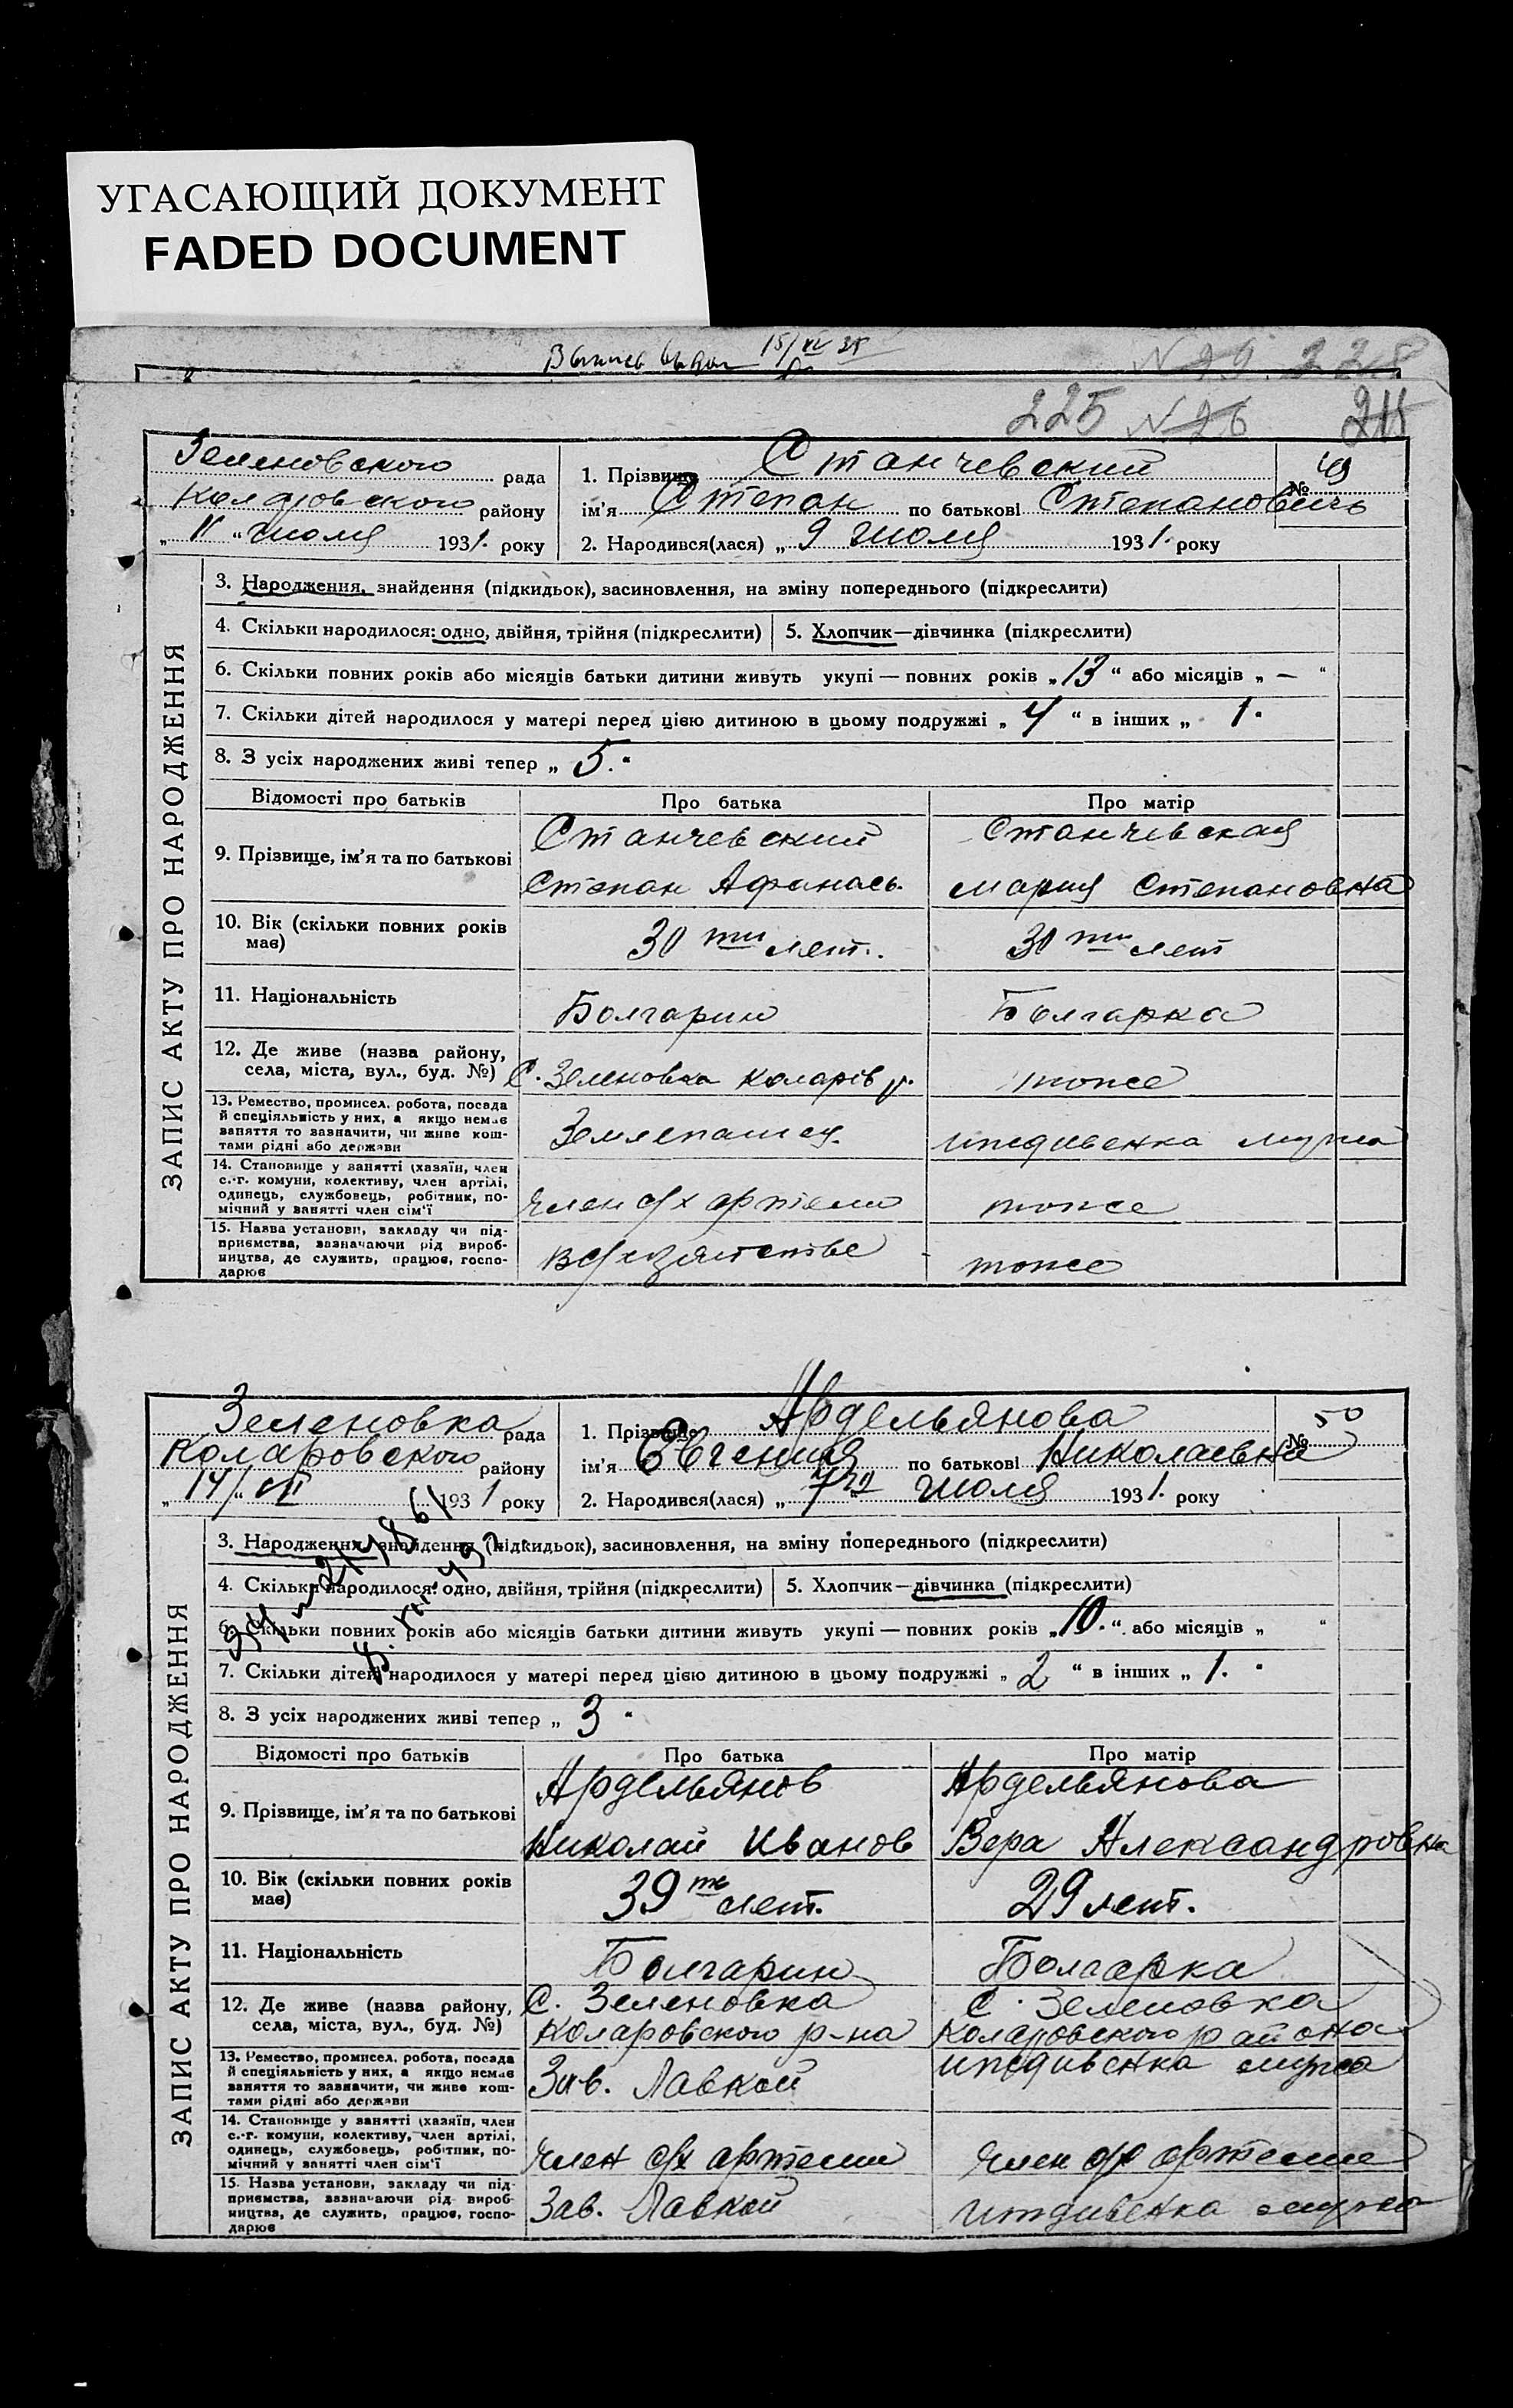 УГАСАЮЩИЙ ДОКУМЕНТ
FADED DOCUMENT
15/XI 35
N 29 228
225 N 26 215
Зеленовского рада
Коларовского району
„ 11 “ Июля 1931. року
1. Прізвище Станчевский
№ 49
ім'я Степан по батькові Степановичь
2. Народився(лася) „ 9 Июля 1931. року
ЗАПИС АКТУ ПРО НАРОДЖЕННЯ
3. Народження, знайдення (підкидьок), засиновлення, на зміну попереднього (підкреслити)
4. Скільки народилося: одно, двійня, трійня (підкреслити)
5. Хлопчик—дівчинка (підкреслити)
6. Скільки повних років або місяців батьки дитини живуть укупі — повних років „ 13 “ або місяців „ — “
7. Скільки дітей народилося у матері перед цією дитиною в цьому подружжі „ 4 “ в інших „ 1. “
8. З усіх народжених живі тепер „ 5. “
Відомості про батьків
Про батька
Про матір
9. Прізвище, ім'я та по батькові
Станчевский
Степан Афанась.
Станчевская
Мария Степановна
10. Вік (скільки повних років
має)
30 ти лет.
30 ти лет
11. Національність
Болгарин
Болгарка
12. Де живе (назва району,
села, міста, вул., буд. №)
С. Зеленовка Коларів р.
тоже
13. Ремество, промисел, робота, посада
й спеціяльність у них, а якщо немає
заняття то зазначити, чи живе кош-
тами рідні або держави
Землепашец.
иждивенка мужа
14. Становище у занятті (хазяїн, член
с.-г. комуни, колективу, член артілі,
одинець, службовець, робітник, по-
мічний у занятті член сім'ї
Член с/х артели
тоже
15. Назва установи, закладу чи під-
приємства, зазначаючи рід вироб-
ництва, де служить, працює, госпо-
дарює
тоже
Зеленовка рада
Коларовского району
„ 14/“ VII 1931 року
1. Прізвище Ардельянова
№ 50
ім'я Евгения по батькові Николаевна
2. Народився(лася) „ 7го Июля 1931. року
ЗАПИС АКТУ ПРО НАРОДЖЕННЯ
3. Народження, знайдення (підкидьок), засиновлення, на зміну попереднього (підкреслити)
4. Скільки народилося: одно, двійня, трійня (підкреслити)
5. Хлопчик—дівчинка (підкреслити)
6. Скільки повних років або місяців батьки дитини живуть укупі — повних років „ 10. “ або місяців „ “
7. Скільки дітей народилося у матері перед цією дитиною в цьому подружжі „ 2 “ в інших „ 1. “
8. З усіх народжених живі тепер „ 3 “
Відомості про батьків
Про батька
Про матір
9. Прізвище, ім'я та по батькові
Ардельянов
Николай Иванов
Ардельянова
Вера Александровна
10. Вік (скільки повних років
має)
39 те лет.
29 лет.
11. Національність
Болгарин
Болгарка
12. Де живе (назва району,
села, міста, вул., буд. №)
С. Зеленовка
Коларовского р-на
С. Зеленовка
Коларовского района
13. Ремество, промисел, робота, посада
й спеціяльність у них, а якщо немає
заняття то зазначити, чи живе кош-
тами рідні або держави
Зав. Лавкой
иждивенка мужа
14. Становище у занятті (хазяїн, член
с.-г. комуни, колективу, член артілі,
одинець, службовець, робітник, по-
мічний у занятті член сім'ї
Член с/х артели
Член с/х артели
15. Назва установи, закладу чи під-
приємства, зазначаючи рід вироб-
ництва, де служить, працює, госпо-
дарює
Зав. Лавкой
иждивенка мужа